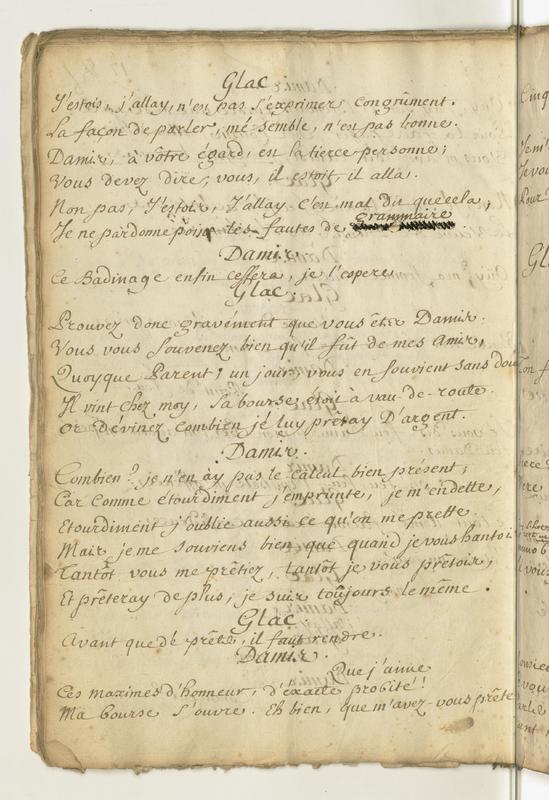 Glac.
J'estois, j'allay, n'en pas s'exprimer congrûment.
La façon de parler, mé semble, n'en pas bonne.
Damis, à vôtre égard, en la tierce personne;
Vous devez dire; vous, il estoit, il alla.
Non pas, J'estois, J'allay c'en mal dit que cela;
Je ne pardonne point les fautes de grammaire
Damis.
Ce Badinage enfin cessera, je l'espere.
Glac.
Prouvez donc gravément que vous êtes Damis.
Vous vous souvenez bien qu'il fût de mes Amis,
Quoyque Parent; un jour, vous en souvient sans dou
Il vint chez moy, sa bourse étoit à vau-de-route
Or devinez combien jé luy prêtay D'argent.
Damis.
Combien? je n'en ày pas le calcul bien présent;
Car comme étourdiment j'emprunte, je m'endette,
Etourdiment j'oublie aussi ce qu'on me prette.
Mais, je me souviens bien que quand je vous hantois
Tantôt vous me prêtiez, tantôt je vous prêtois,
Et prêteray de plus, je suis toûjours le même.
Glac
Avant que dé prêter, il faut rendre.
Damis.
Que j'aime
Ces maximes d'honneur, d'éxacte probité!
Ma bourse s'ouvre. Eh bien, que m'avez-vous prêté